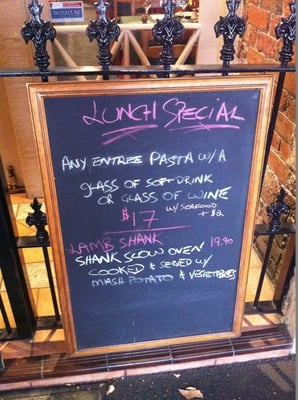 SIGNATURE
LUNCH SPECIAL
ANY ENTREE PASTA W/A
GLASS OF SOFT DRINK
OR GLASS OF WINE
$17 W/SEAFOOD + $2
LAMB SHANK 19.90
SHANK SLOW OVEN
COOKED & SERVED W/
MASH POTATO & VEGETABLES